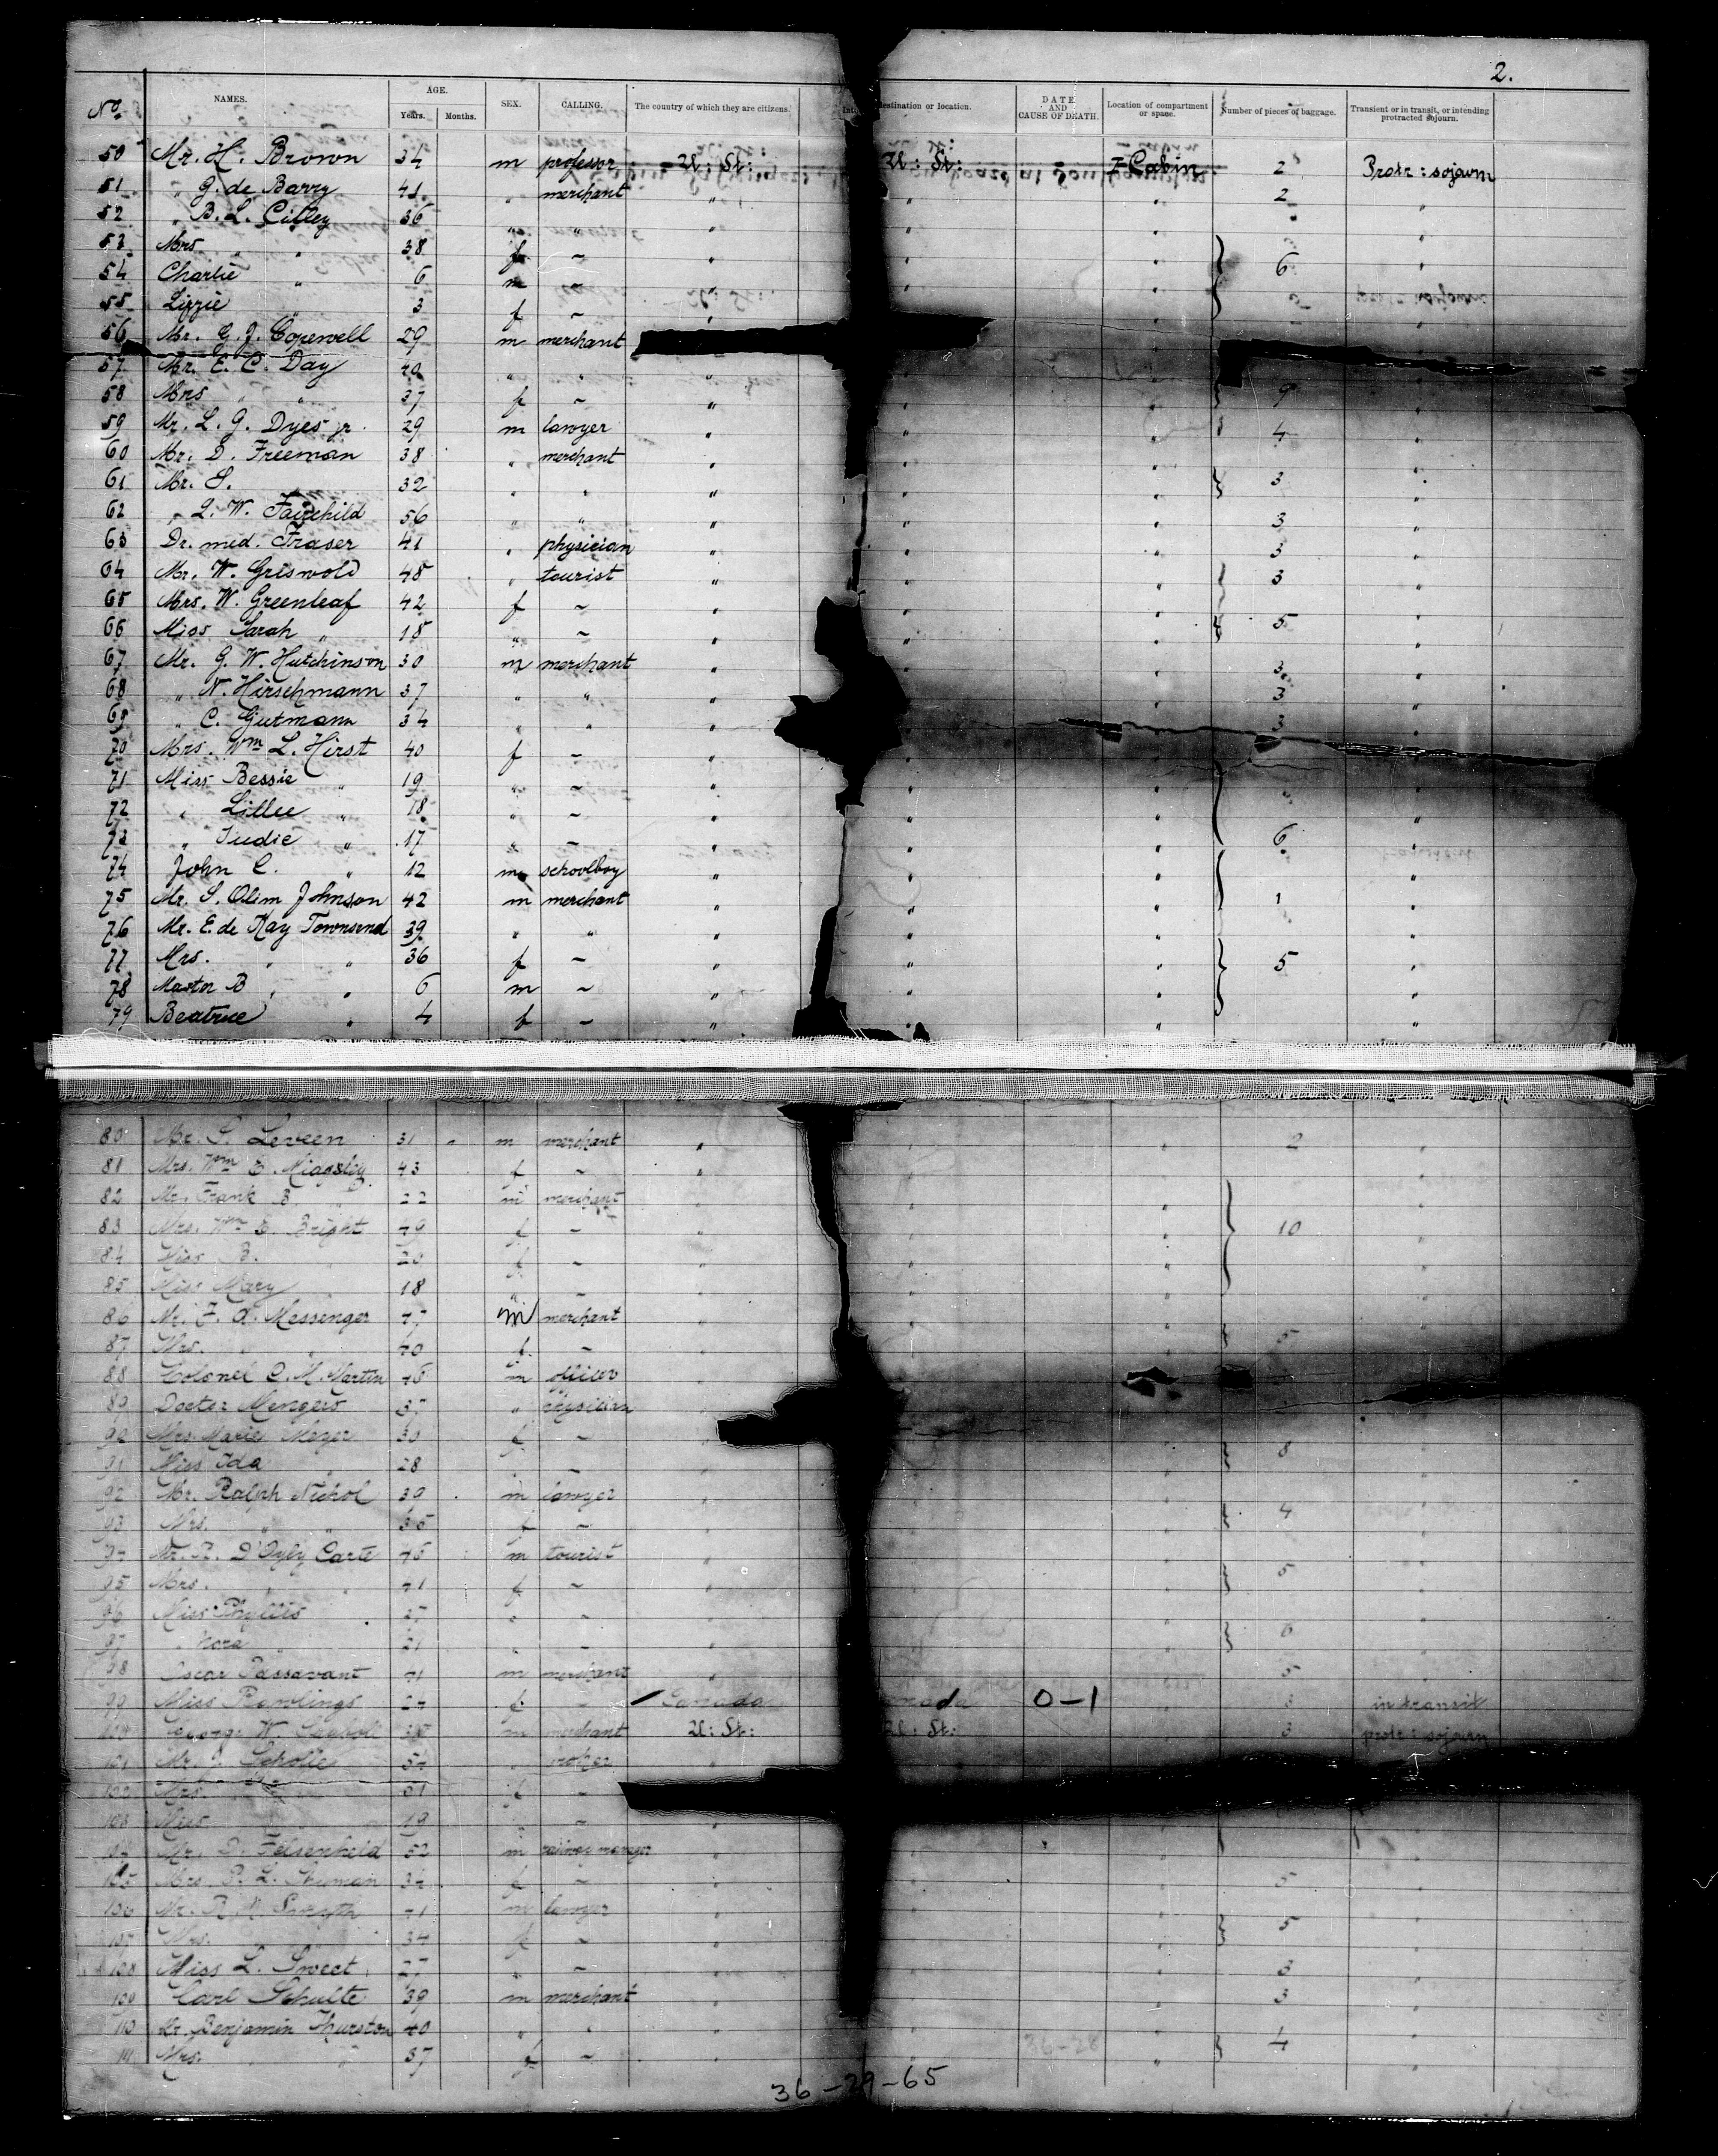 2.
No. NAMES. AGE. Years. Months. SEX. CALLING. The country of which they are citizens. destination or location. DATE AND CAUSE OF DEATH. Location of compartment or space. Number of pieces of baggage. Transient or in transit, or intending protracted sojourn.
50 Mr. H. Brown 34 m professor U: St: U: St: I Cabin 2 Protr: sojourn
51 " G. de Barry 41 " merchant " " " 2 "
52 " B. L. Cilley 36 " " " " " "
53 Mrs " " 38 f ~ " " " 6 "
54 Charlie " 6 m ~ " " "
55 Lizzie " 3 f ~ " "
56 Mr. G. J. Copewell 29 m merchant
57 Mr. E. C. Day 40 " " " "
58 Mrs " " 37 f ~ " " " 9 "
59 Mr. L. G. Dyes jr. 29 m lawyer " " " 4 "
60 Mr. D. Freeman 38 " merchant " " "
61 Mr. S. 32 " " " " " 3 "
62 " L. W. Fairchild 56 " " " " " 3 "
63 Dr. med. Fraser 41 " physician " " " 3 "
64 Mr. W. Griswold 48 " tourist " " " 3 "
65 Mrs. W. Greenleaf 42 f ~ " " "
66 Miss Sarah " 18 " ~ " " " 5 "
67 Mr. G. W. Hutchinson 30 m merchant " " 3 "
68 " N. Hirschmann 37 " " " " 3 "
69 " C. Gutmann 34 " " " " 3 "
70 Mrs. Wm L. Hirst 40 f ~ " " "
71 Miss Bessie " 19 " ~ " " " "
72 " Lillee " 18 " ~ " " " "
73 " Judie " 17 " ~ " " " 6 "
74 John C. " 12 m schoolboy " " " "
75 Mr. S. Olim Johnson 42 m merchant " " " 1 "
76 Mr. E. de Kay Townsend 39 " " " " " "
77 Mrs. " " 36 f ~ " " " 5 "
78 Master B " " 6 m ~ " " " "
79 Beatrice " 4 f ~ " " " "
80 Mr. S. Leveen 31 m merchant " " " 2 "
81 Mrs. Wm E. 43 f ~ " " " "
82 Mr. Frank B " 22 m merchant " "
83 Mrs. Wm E. Bright 49 f ~ " " " 10 "
84 Miss B. " 20 f ~ " " " "
85 Miss Mary 18 " ~ " " "
86 Mr. F. A. Messenger 47 m merchant " " "
87 Mrs. " " 40 f ~ " 5 "
88 Colonel C. M. Martin 46 m officer "
89 Doctor 37 " physician "
90 Mrs Marie Meyer 30 f ~ "
91 Miss Ida " 28 ~ " " 8 "
92 Mr. Ralph Nichol 39 m lawyer " " "
93 Mrs. " " 35 f ~ " " 4 "
94 Mr. R. D'Oyly Carte 46 m tourist " " "
95 Mrs. " 41 f ~ " " 5 "
96 Miss Phyllis 27 " ~ " " "
97 " Nora 21 " ~ " " 6 "
98 Oscar Passavant 41 m merchant " " 5 "
99 Miss Rawlings 24 f ~ Canada nada 0-1 3 in transit
100 George W. 38 m merchant U: St: U: St: 3 protr: sojourn
101 Mr. J. Scholle 54 " broker "
102 Mrs. 51 f ~
103 Miss 19 " ~ "
104 Mr. D. Felsenheld 52 m railway manager " "
105 Mrs. P. L. 34 f ~ " " 5 "
106 Mr. R. M. Smyth 41 m lawyer " " "
107 Mrs. 34 f ~ " " 5 "
108 Miss L. Sweet 27 " ~ " " 3 "
109 Carl Schulte 39 m merchant " " 3 "
110 Benjamin Thurston 40 " " " " "
111 Mrs. " 37 f ~ " " 4 "
36-28
36-29-65